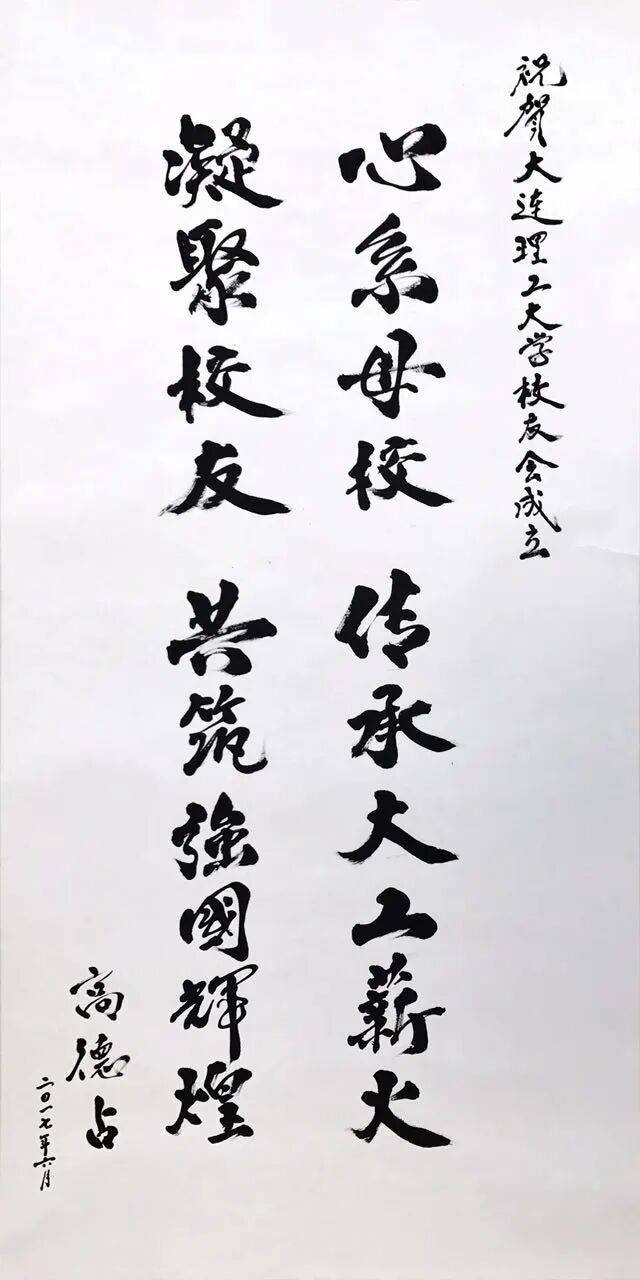 祝贺大连理工大学校友会成立
心系母校 传承大工薪火
凝聚校友 共筑强國輝煌
高德占
二〇一七年六月